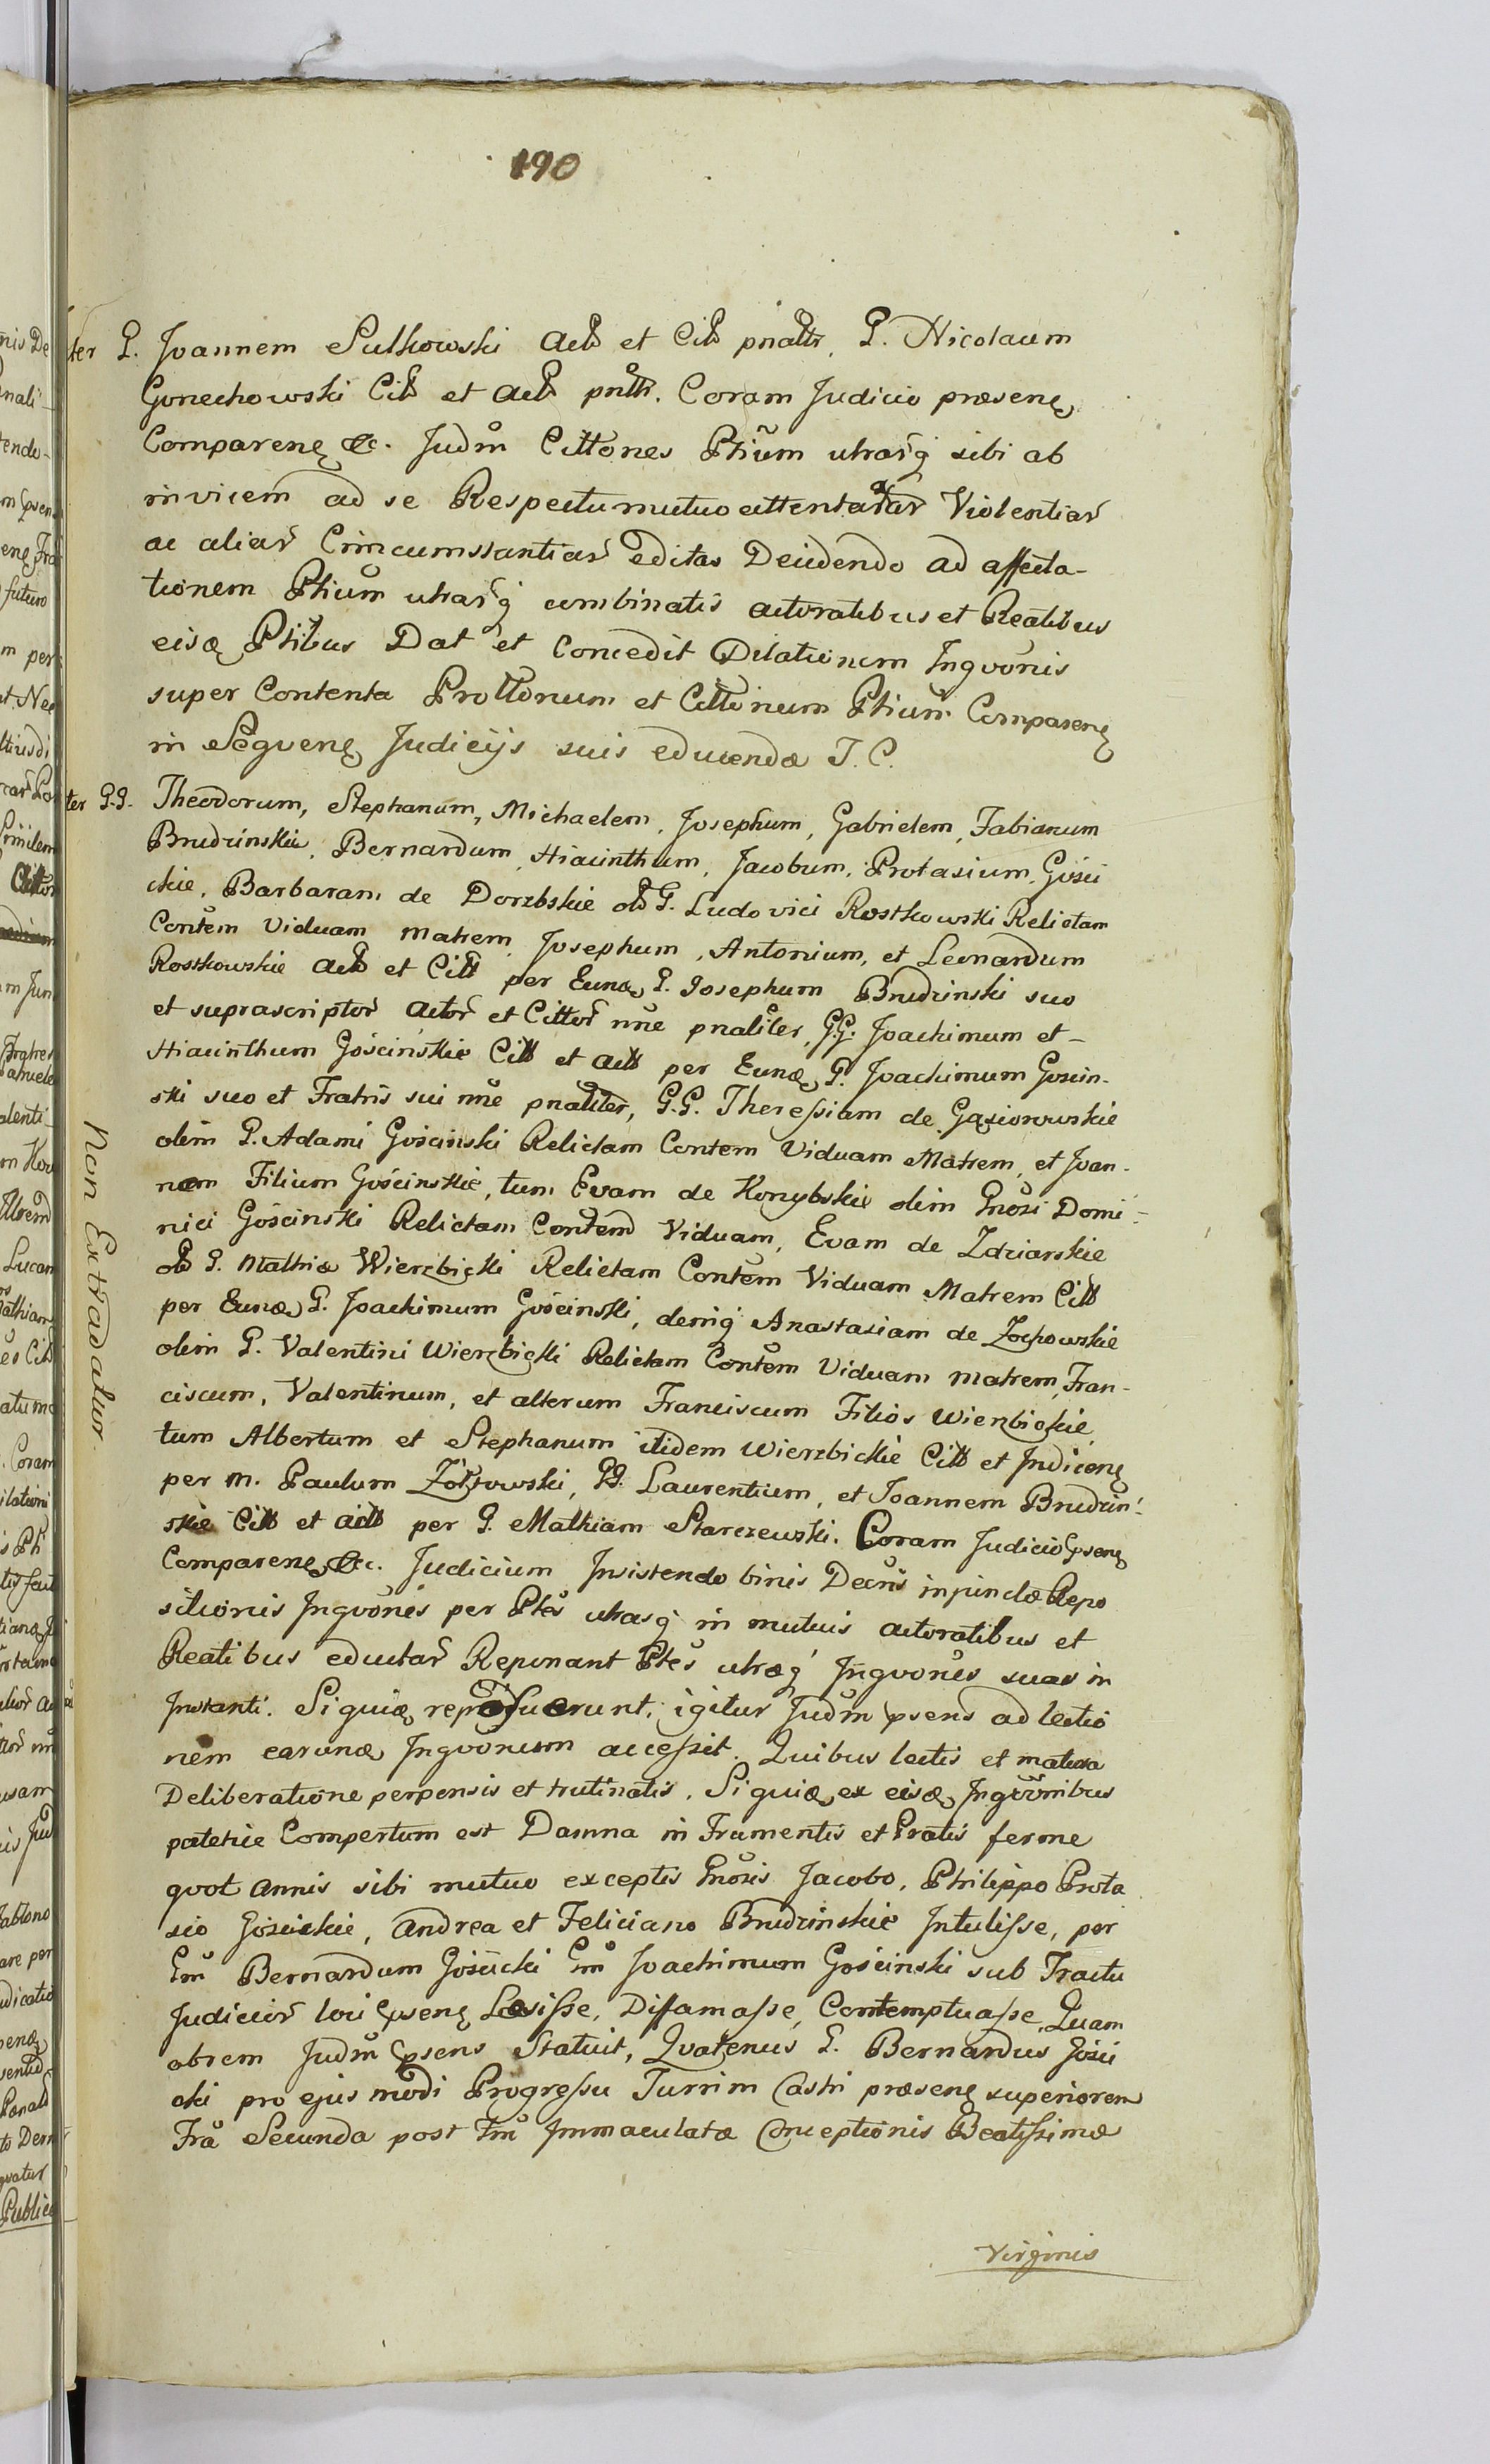 190
ter G. Joannem Sulkowski Actt et Citt pnaltr, G. Nicolaum
Gonechowski Citt et Actt pnltr. Coram Judicio præsenę
Comparenę &c. Judm Cittones Ptium utrarq sibi ab
invicem ad se Respectu mutuo attentatar Violentiar
ac aliar Circumstantiar Editas Decidendo ad affecta-
tionem Ptium utrarq combinatis actoratibus et Reatibus
eisdę Ptibus Dat et Concedit Dilationem Inqvonis
super Contenta Prottonum et Cittonum Ptium Comparenę
in Seqvenę Judicijs suis educenda T. C.
ter G.G. Theodorum, Stephanum, Michaelem, Josephum, Gabrielem, Fabianum
Brudzinskie, Bernardum, Hiacinthum, Jacobum, Protasium, Gości
ckie, Barbaram de Dorzbskie olt G. Ludovici Rostkowski Relictam
Contem Viduam Matrem, Josephum, Antonium, et Leonardum
Rostkowskie Actt et Citt per Eundę G. Josephum Brudzinski suo
et suprascriptor Actor et Cittor nne pnaliter, G.G. Joachimum et -
Hiacinthum Gościnskie Citt et Actt per Eundę G. Joachimum Goscin-
ski suo et Fratris sui nne pnaliter, G.G. Theressiam de Gąsiorowskie
olim G. Adami Gościnski Relictam Contem Viduam Matrem, et Joan-
nem Filium Gościnskie, tum Evam de Konybskie olim Gnosi Domi-
nici Gościnski Relictam Contem Viduam, Evam de Zdziarskie
olt G. Mathiæ Wierzbicki Relictam Contem Viduam Matrem Citt
per Eundę G. Joachimum Gościnski, deniq Anastasiam de Zochowskie
olim G. Valentini Wierzbicki Relictam Contem Viduam Matrem, Fran-
ciscum, Valentinum, et alterum Franciscum Filios Wierzbickie,
tum Albertum et Stephanum itidem Wierzbickie Citt et Indicenę
per M. Paulum Żółtowski, GG. Laurentium, et Joannem Brudzin-
skie Citt et Actt per G. Mathiam Starczewski. Coram Judicio psenę
Comparenę &c. Judicium Insistendo binis Decris injunctæ Repo
sitionis Inqvonis per Ptes utrasq in mutuis actoratibus et
Reatibus eductar Reponant Ptes utræq Inqvones suas in
Instanti. Siquidę reposuerunt, igitur Judm psens ad lectio
nem earundę Inqvonum accessit. Quibus lectis et matura
Deliberatione perpensis et trutinatis. Siquidę ex eisdę Inqvonibus
patetice Compertum est Damna in Frumentis et Pratis ferme
qvot Annis sibi mutuo exceptis Gnosis Jacobo, Philippo Prota
sio Gościckie, Andrea et Feliciano Brudzinskie Intulisse, per
Gm Bernardum Gościcki Gm Joachimum Gościnski sub Tractu
Judicior loci psenę Læsisse, Diffamasse, Contemptuasse, Quam
obrem Judm psens Statuit, Qvatenus G. Bernardus Gości
cki pro ejus modi Progressu Turrim Castri præsenę superiorem
Fra Secunda post Fm Immaculatæ Conceptionis Beatissimæ
Virginis
Non Extradatur.